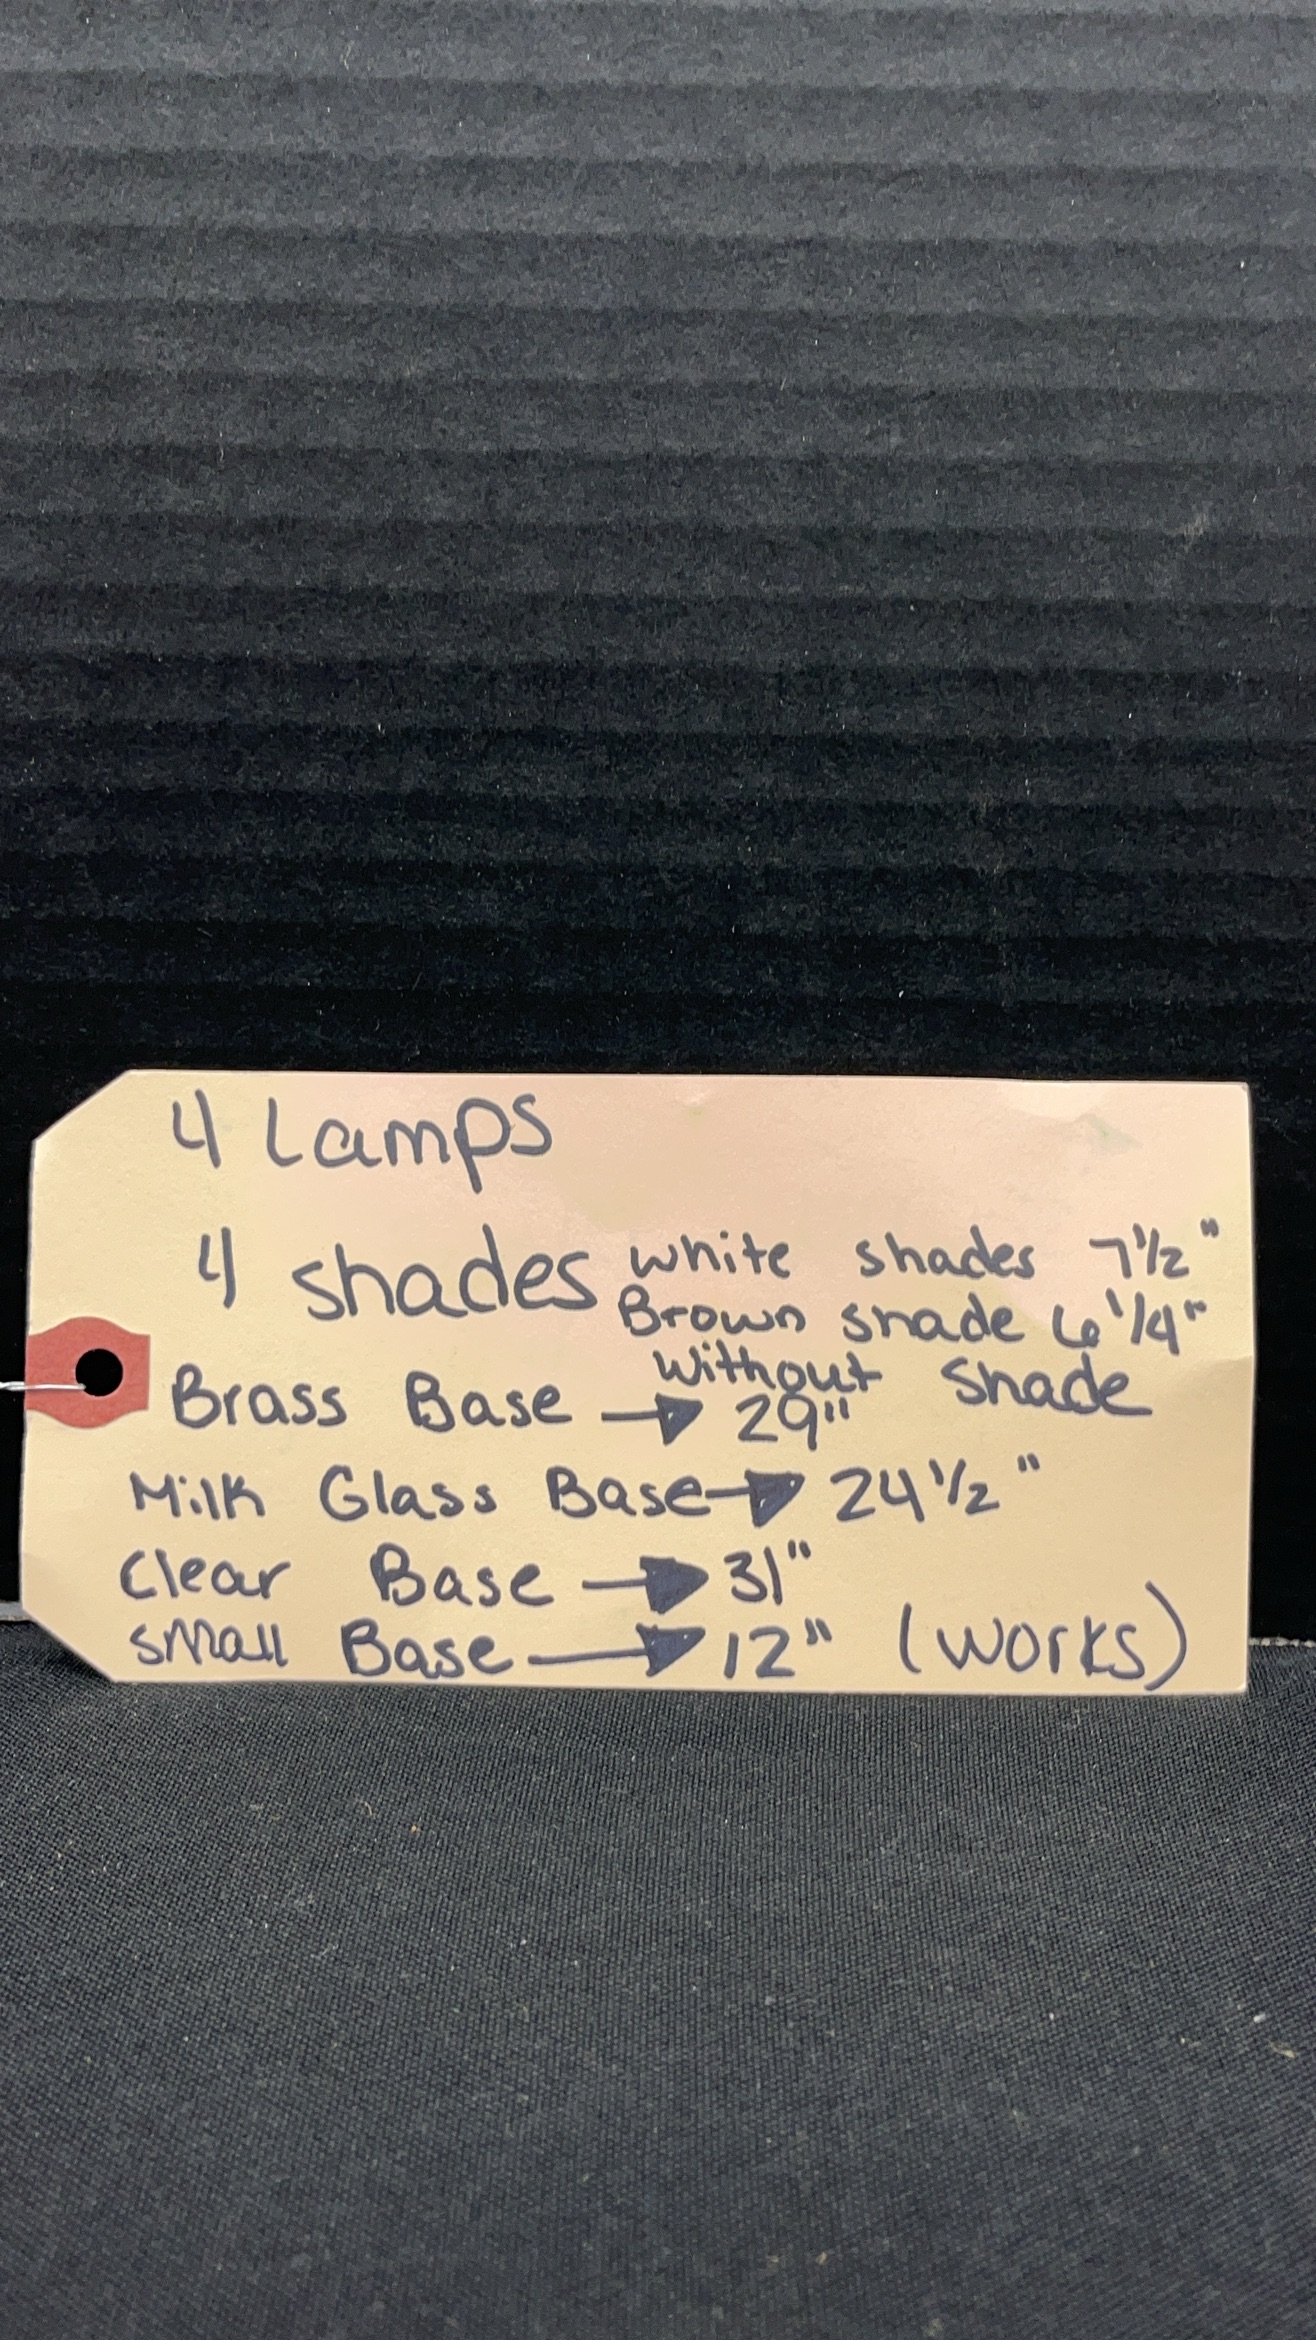 4 Lamps
4 shades white shades 7 1/2"
Brown shade 6 1/4"
without shade
Brass Base → 29"
Milk Glass Base → 24 1/2"
Clear Base → 31"
small Base → 12" (works)